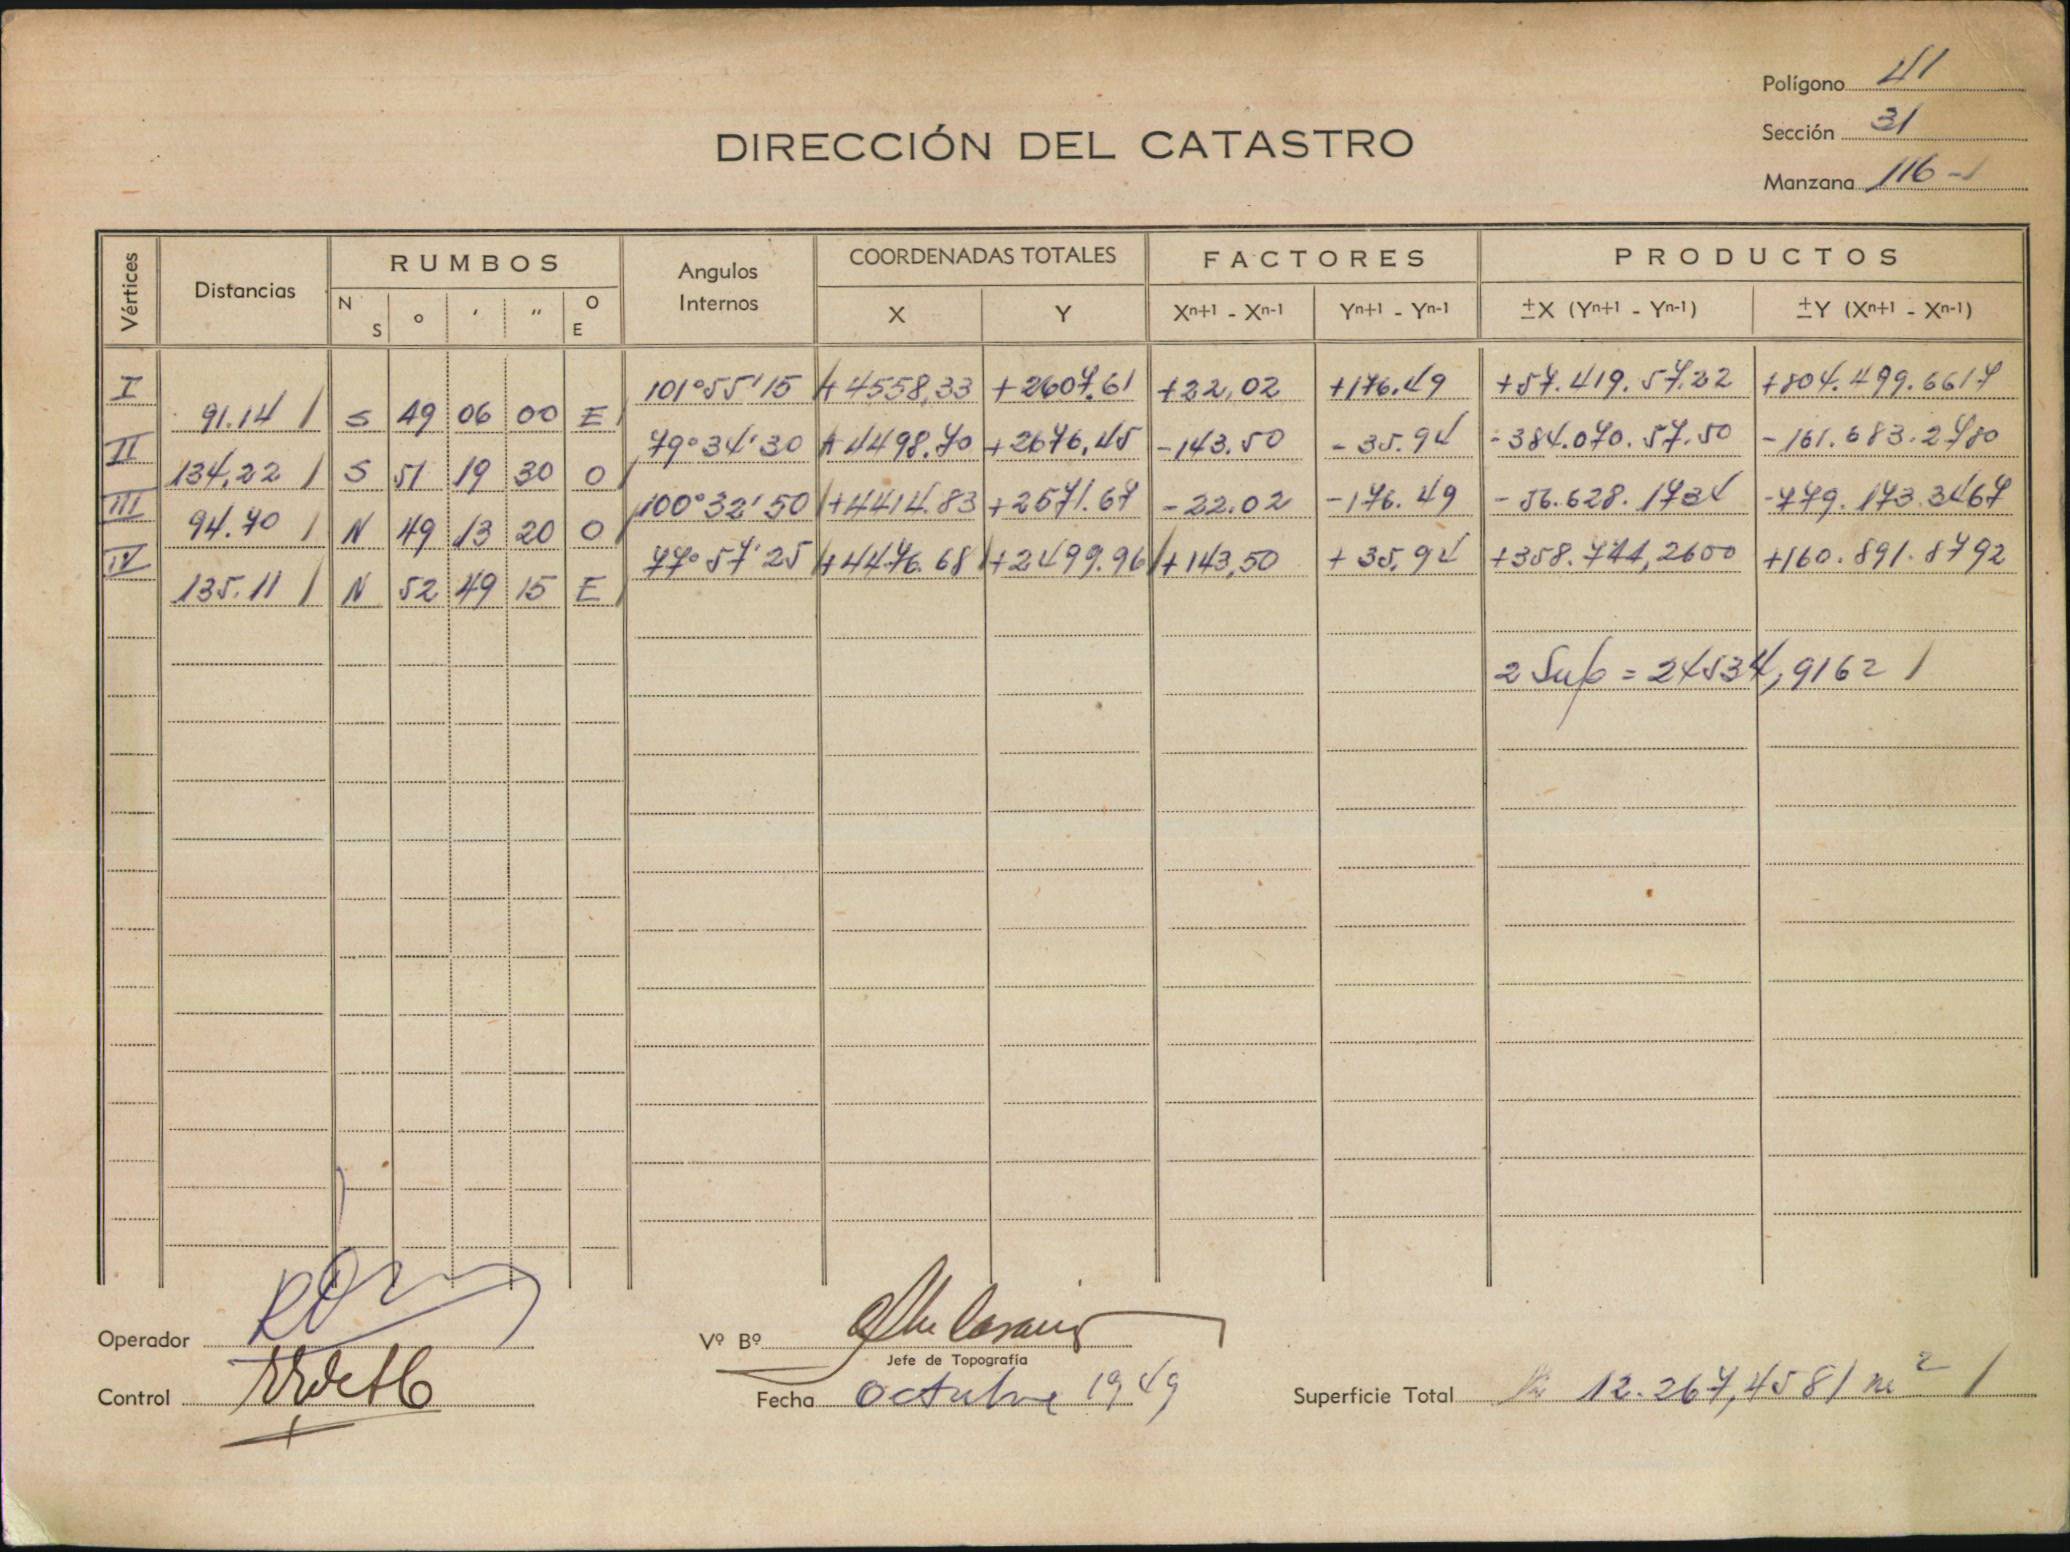 Polígono 41
Sección 31
Manzana 116-1
DIRECCIÓN DEL CATASTRO
Vértices Distancias RUMBOS Angulos Internos COORDENADAS TOTALES FACTORES PRODUCTOS
N S ° ' " O E X Y Xn+1 - Xn-1 Yn+1 - Yn-1 ±X (Yn+1 - Yn-1) ±Y (Xn+1 - Xn-1)
I 101°55'15 +4558,33 +2607.61 +22,02 +176.49 +57.419.57.22 +804.499.6617
91.14 / S 49 06 00 E /
II 79°34'30 +4498.70 +2676,45 -143.50 -35.94 -384.070.57.50 -161.683.2780
134,22 / S 51 19 30 O /
III 100°32'50 +4414.83 +2571.67 -22.02 -176.49 -56.628.1734 -779.173.3467
94.70 / N 49 13 20 O /
IV 77°57'25 +4476.68 +2499.96 +143,50 +35,94 +358.744,2600 +160.891.8792
135.11 / N 52 49 15 E /
2 Sup = 24534,9162 /
Operador
Vº Bº
Jefe de Topografía
Control
Fecha Octubre 1949
Superficie Total 12.267,4581 m² /